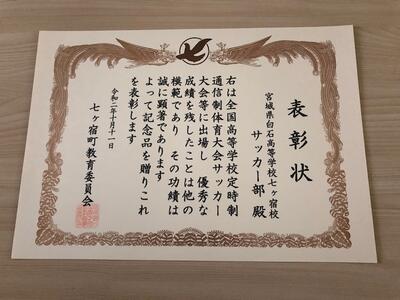 表彰状
宮城県白石高等学校七ヶ宿校
サッカー部 殿
右は全国高等学校定時制
通信制体育大会サッカー
大会等に出場し 優秀な
成績を残したことは他の
模範であり その功績は
誠に顕著であります
よって記念品を贈りこれ
を表彰します
令和二年十月十一日
七ヶ宿町教育委員会